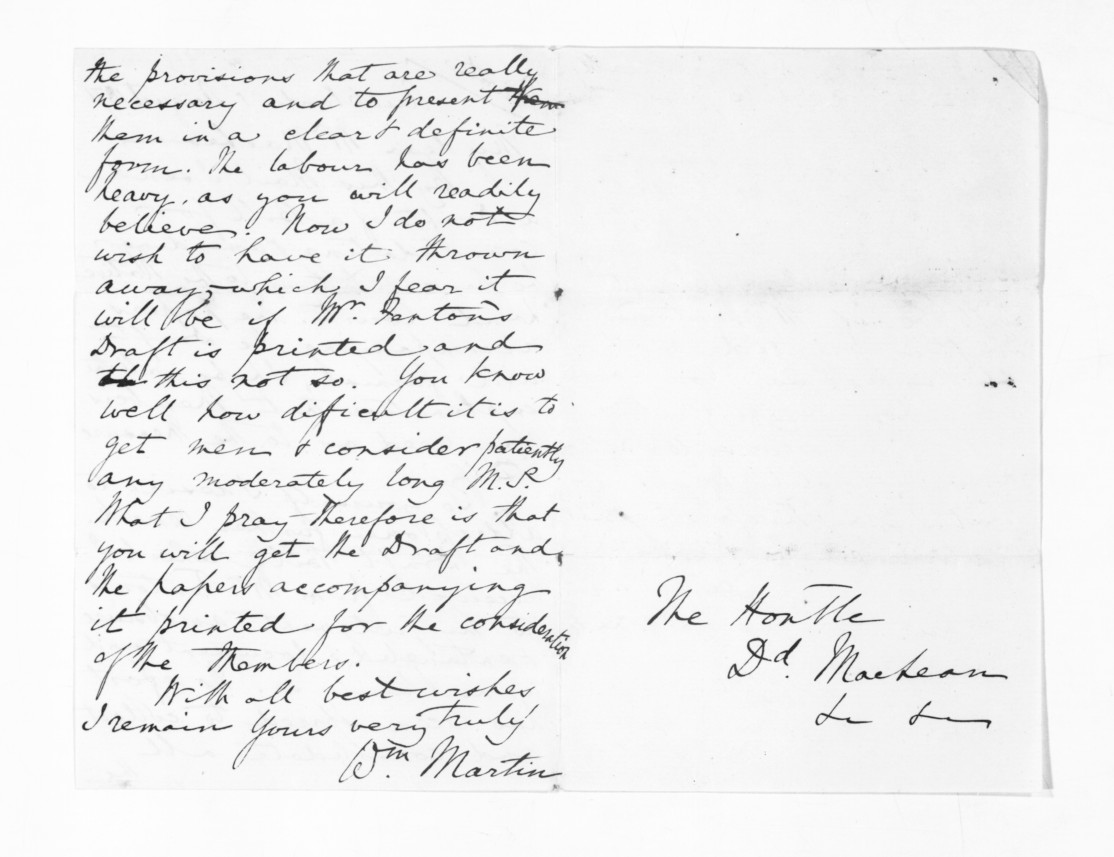 the provisions that are really
necessary and to present them
them in a clear & definite
form. The labour has been
heavy, as you will readily
believe. Now I do not
wish to have it thrown
away, which, I fear it
will be if Mr. Fenton's
Draft is printed and
this not so. You know
well how difficult it is to
get men & consider patiently
any moderately long M.S.
What I pray therefore is that
you will get the Draft and
the papers accompanying
it printed for the consideration
of the Members.
With all best wishes
I remain Yours very truly
Wm. Martin
The Honble
Dd. MacLean
&c &c